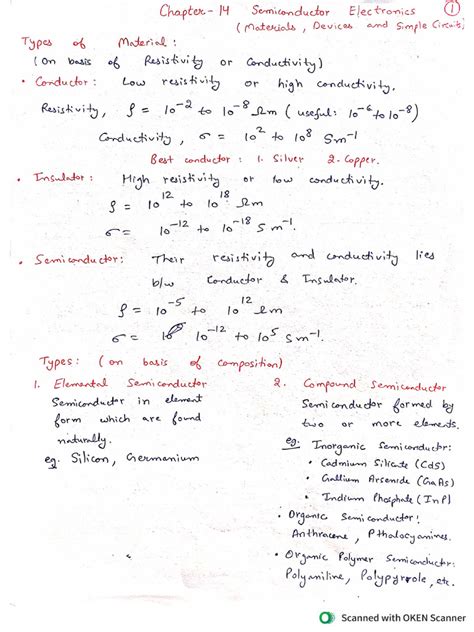 Chapter-14 Semiconductor Electronics ①
(Materials, Devices and Simple Circuits)
Types of Material:
(On basis of Resistivity or Conductivity)
• Conductor: Low resistivity or high conductivity.
Resistivity, ρ = 10⁻² to 10⁻⁸ Ωm (useful: 10⁻⁶ to 10⁻⁸)
Conductivity, σ = 10² to 10⁸ Sm⁻¹
Best conductor: 1. Silver 2. Copper.
• Insulator: High resistivity or low conductivity.
ρ = 10¹² to 10¹⁸ Ωm
σ = 10⁻¹² to 10⁻¹⁸ S m⁻¹.
• Semiconductor: Their resistivity and conductivity lies
b/w Conductor & Insulator.
ρ = 10⁻⁵ to 10¹² Ωm
σ = 10⁻¹² to 10⁵ Sm⁻¹.
Types: (on basis of composition)
1. Elemental Semiconductor
Semiconductor in element
form which are found
naturally.
eg. Silicon, Germanium
2. Compound Semiconductor
Semiconductor formed by
two or more elements.
eg. Inorganic Semiconductor:
• Cadmium Silicate (CdS)
• Gallium Arsenide (GaAs)
• Indium Phosphate (InP)
• Organic Semiconductor:
Anthracene, Pthalocyanines.
• Organic Polymer Semiconductor:
Polyaniline, Polypyrrole, etc.
Scanned with OKEN Scanner